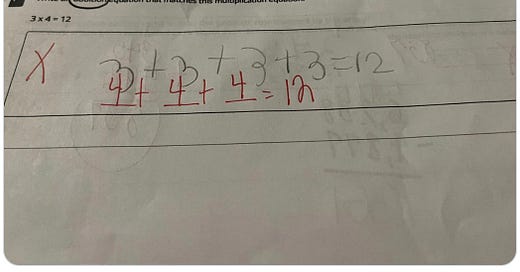 addition equation that matches this multiplication equation.
3 x 4 = 12
X 3 + 3 + 3 + 3 = 12
4 + 4 + 4 = 12